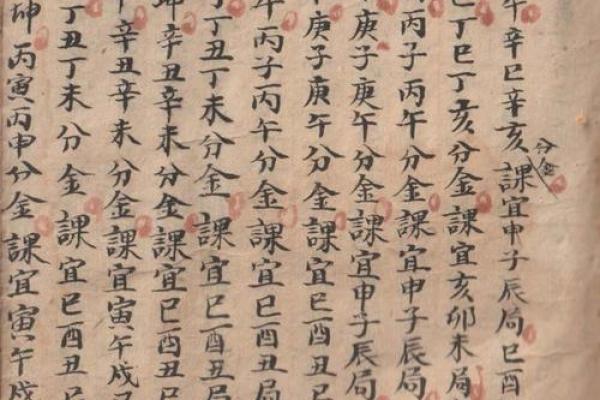 午辛巳辛亥分金課宜申子辰局巳酉
丁巳丁亥分金課宜亥卯未局
丙子丙午分金課宜申子辰局
庚子庚午分金課宜申子辰局
庚子庚午分金課宜巳酉丑
午丙子丙午分金課宜巳酉丑局
丁丑丁未分金課宜巳酉丑局
辛丑辛未分金課宜巳酉丑
辛丑辛未分金課宜寅午戌
丁丑丁未分金課宜巳酉丑
坤丙寅丙申分金課宜寅午戌